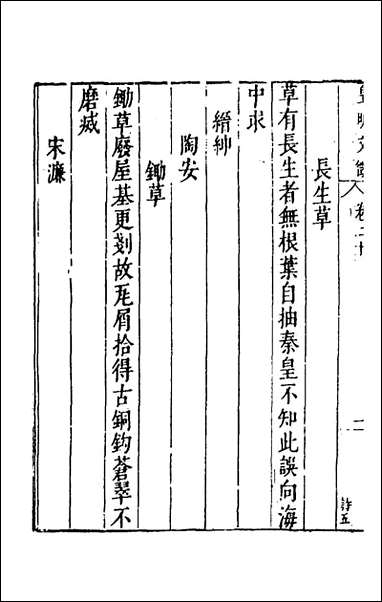 皇明文徵 卷二十 二 詩五
長生草
草有長生者無根葉自抽秦皇不知此誤向海
中求
縉紳
陶安
鋤草
鋤草廢屋基更剗故瓦屑拾得古銅鈎蒼翠不
磨滅
宋濂